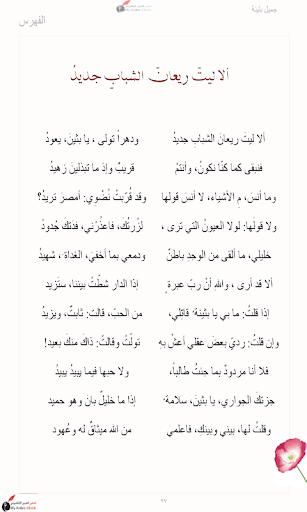 جميل بثينة
الفهرس
ألا ليتَ ريعانَ الشبابِ جديدُ
ألا ليتَ ريعانَ الشباب جديدُ ودهراً تولى ، يا بثينَ، يعودُ
فنبقى كما كنّا نكونُ، وأنتمُ قريبٌ وإذ ما تبذلينَ زهيدُ
وما أنسَ، مِ الأشياء، لا أنسَ قولها وقد قُرّبتْ نُضْوِي: أمصرَ تريدُ؟
ولا قولَها: لولا العيونُ التي ترى ، لزُرتُكَ، فاعذُرْني، فدَتكَ جُدودُ
خليلي، ما ألقى من الوجدِ باطنٌ ودمعي بما أخفيَ، الغداةَ ، شهيدُ
ألا قد أرى ، واللهِ أنْ ربّ عبرةٍ إذا الدار شطّتْ بيننا، ستَزيد
إذا قلتُ: ما بي يا بثينةُ قاتِلي، من الحبّ، قالت: ثابتٌ، ويزيدُ
وإن قلتُ: رديّ بعضَ عقلي أعشْ بهِ تولّتْ وقالتْ: ذاكَ منكَ بعيد!
فلا أنا مردودٌ بما جئتُ طالباً، ولا حبها فيما يبيدُ يبيدُ
جزتكَ الجواري، يا بثينَ، سلامةً إذا ما خليلٌ بانَ وهو حميد
وقلتُ لها، بيني وبينكِ، فاعلمي من الله ميثاقٌ له وعُهود
٢٧